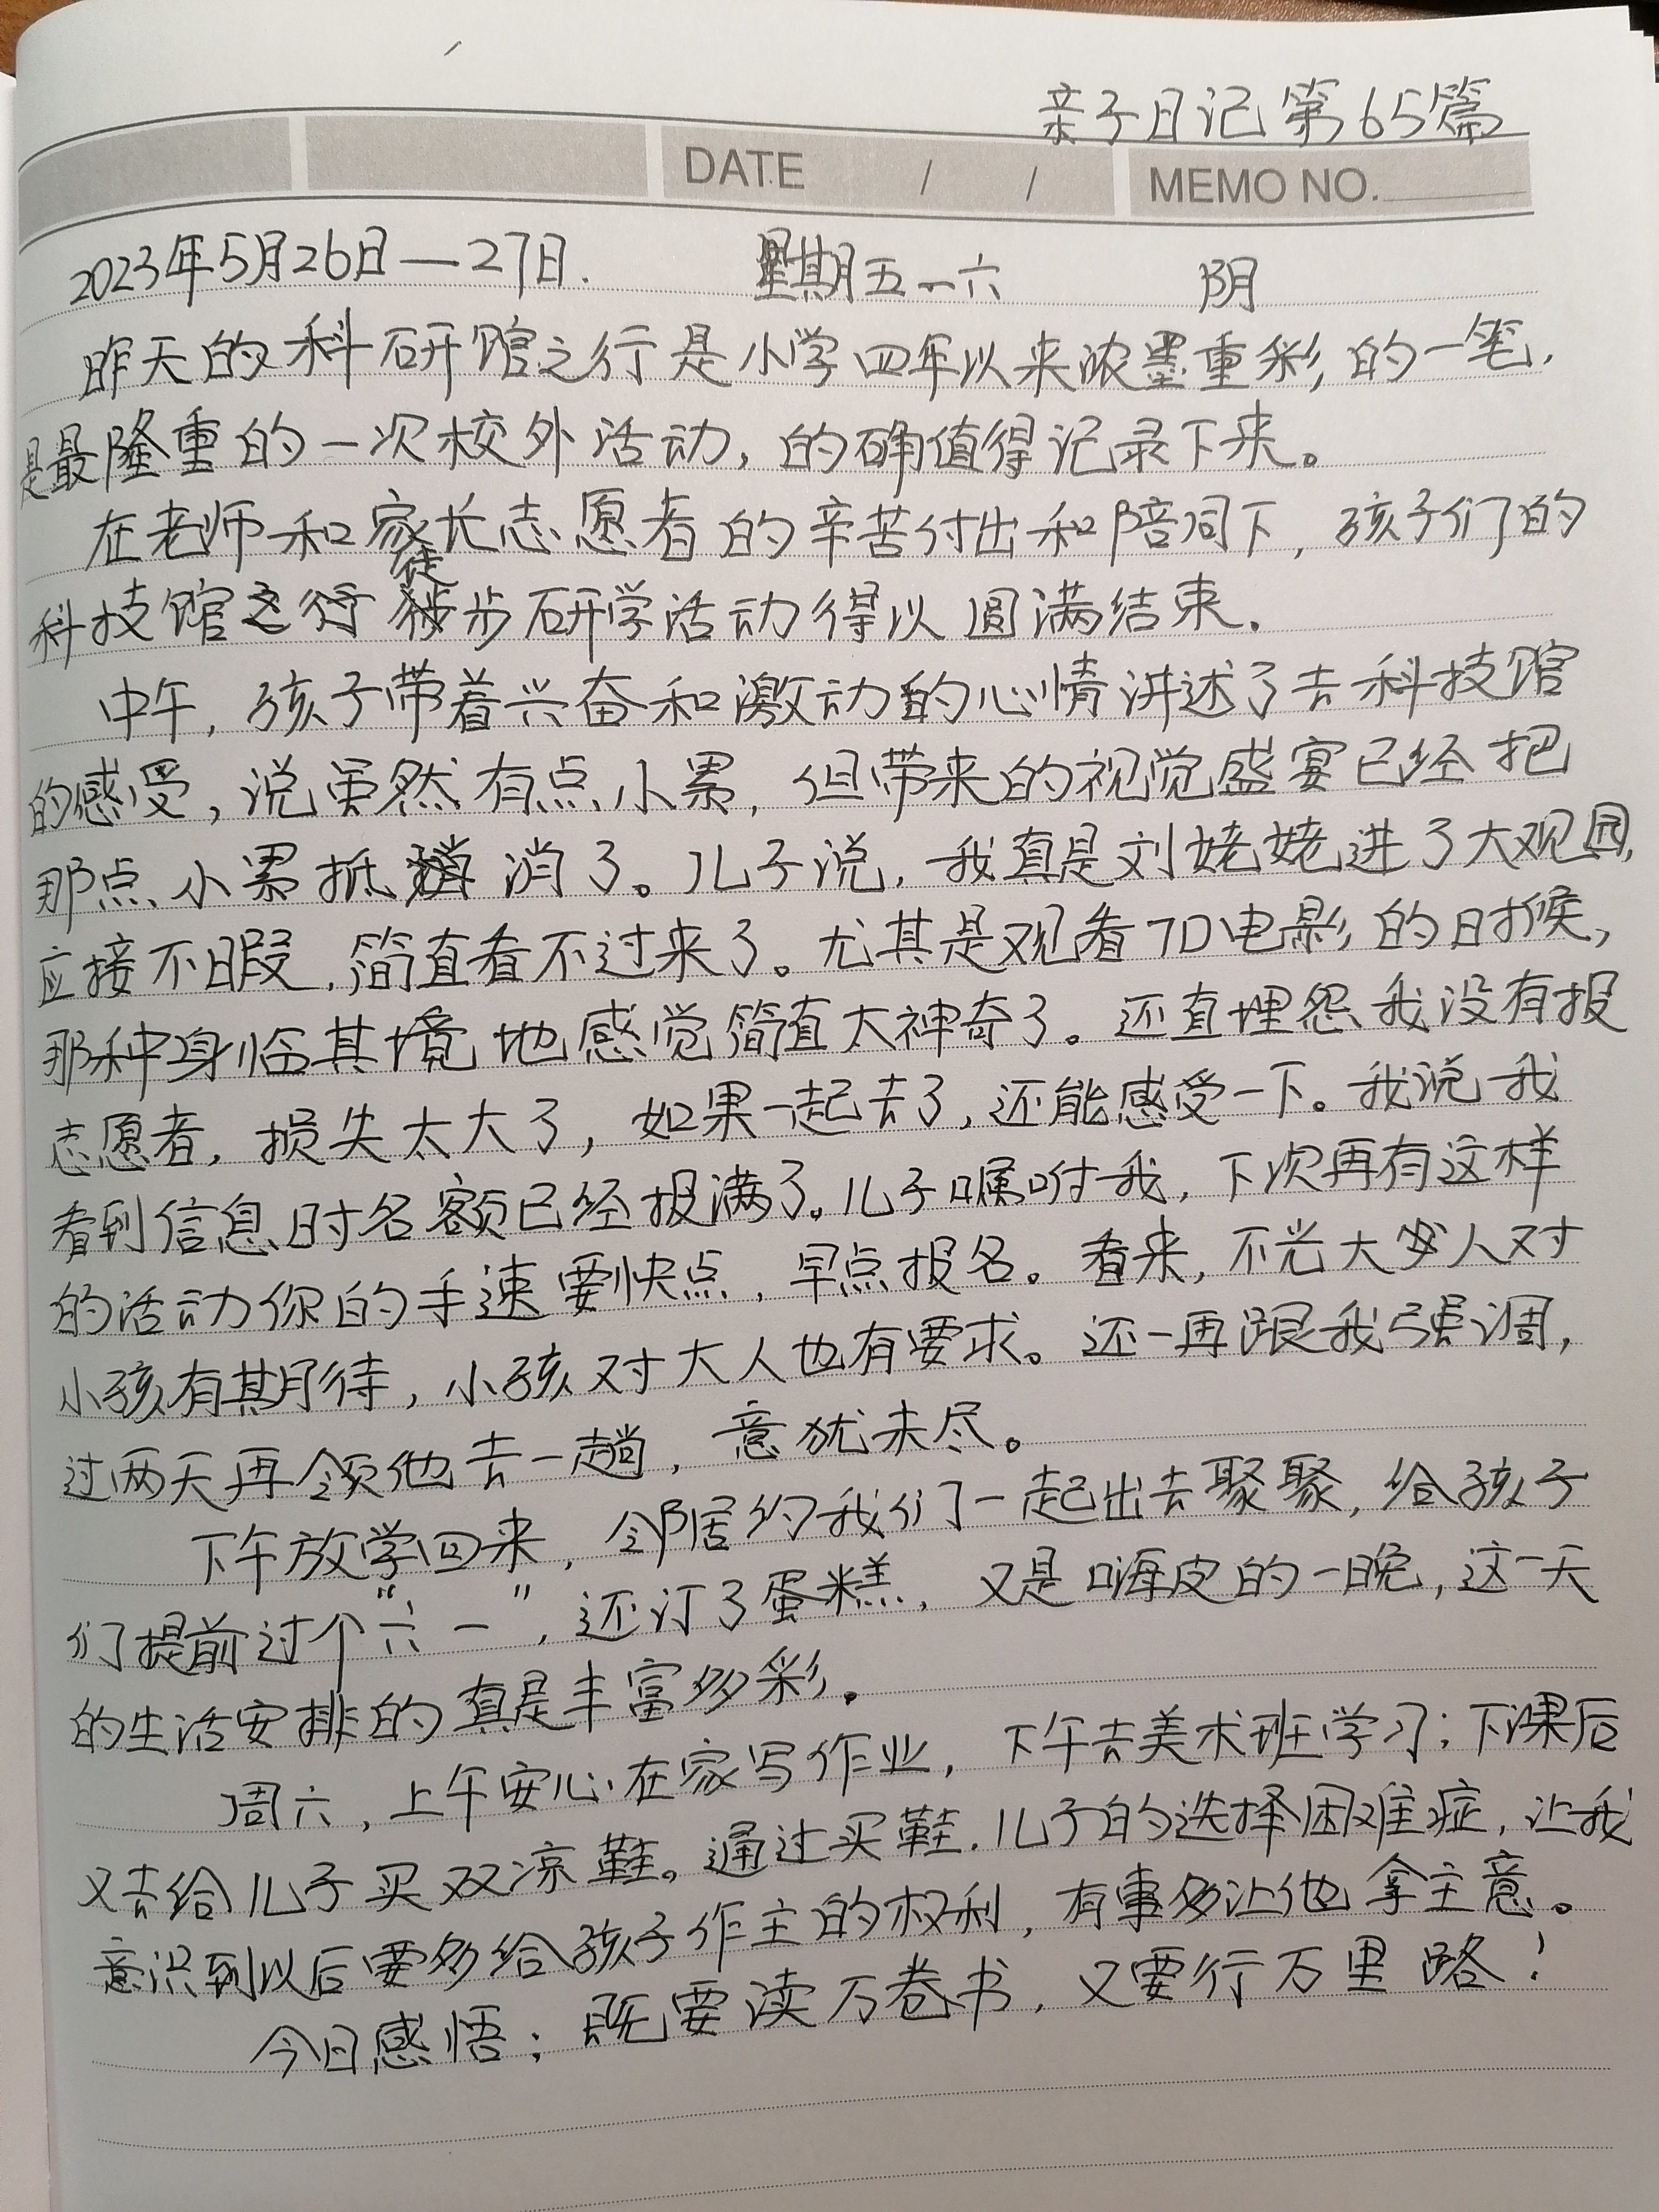 亲子日记第65篇
DATE / / MEMO NO.
2023年5月26日—27日. 星期五-六 阴
昨天的科研馆之行是小学四年以来浓墨重彩的一笔,
是最隆重的一次校外活动,的确值得记录下来。
在老师和家长志愿者的辛苦付出和陪同下,孩子们的
科技馆之行徒步研学活动得以圆满结束.
中午,孩子带着兴奋和激动的心情讲述了去科技馆
的感受,说虽然有点小累,但带来的视觉盛宴已经把
那点小累抵消了。儿子说,我真是刘姥姥进了大观园,
应接不暇,简直看不过来了。尤其是观看7D电影的时候,
那种身临其境地感觉简直太神奇了。还直埋怨我没有报
志愿者,损失太大了,如果一起去了,还能感受一下。我说我
看到信息时名额已经报满了。儿子嘱咐我,下次再有这样
的活动你的手速要快点,早点报名。看来,不光大人对
小孩有期待,小孩对大人也有要求。还一再跟我强调,
过两天再领他去一趟,意犹未尽。
下午放学回来,邻居约我们一起出去聚聚,给孩子
们提前过个“六一”,还订了蛋糕,又是嗨皮的一晚,这一天
的生活安排的真是丰富多彩.
周六,上午安心在家写作业,下午去美术班学习;下课后
又去给儿子买双凉鞋。通过买鞋.儿子的选择困难症,让我
意识到以后要多给孩子作主的权利,有事多让他拿主意。
今日感悟:既要读万卷书,又要行万里路!